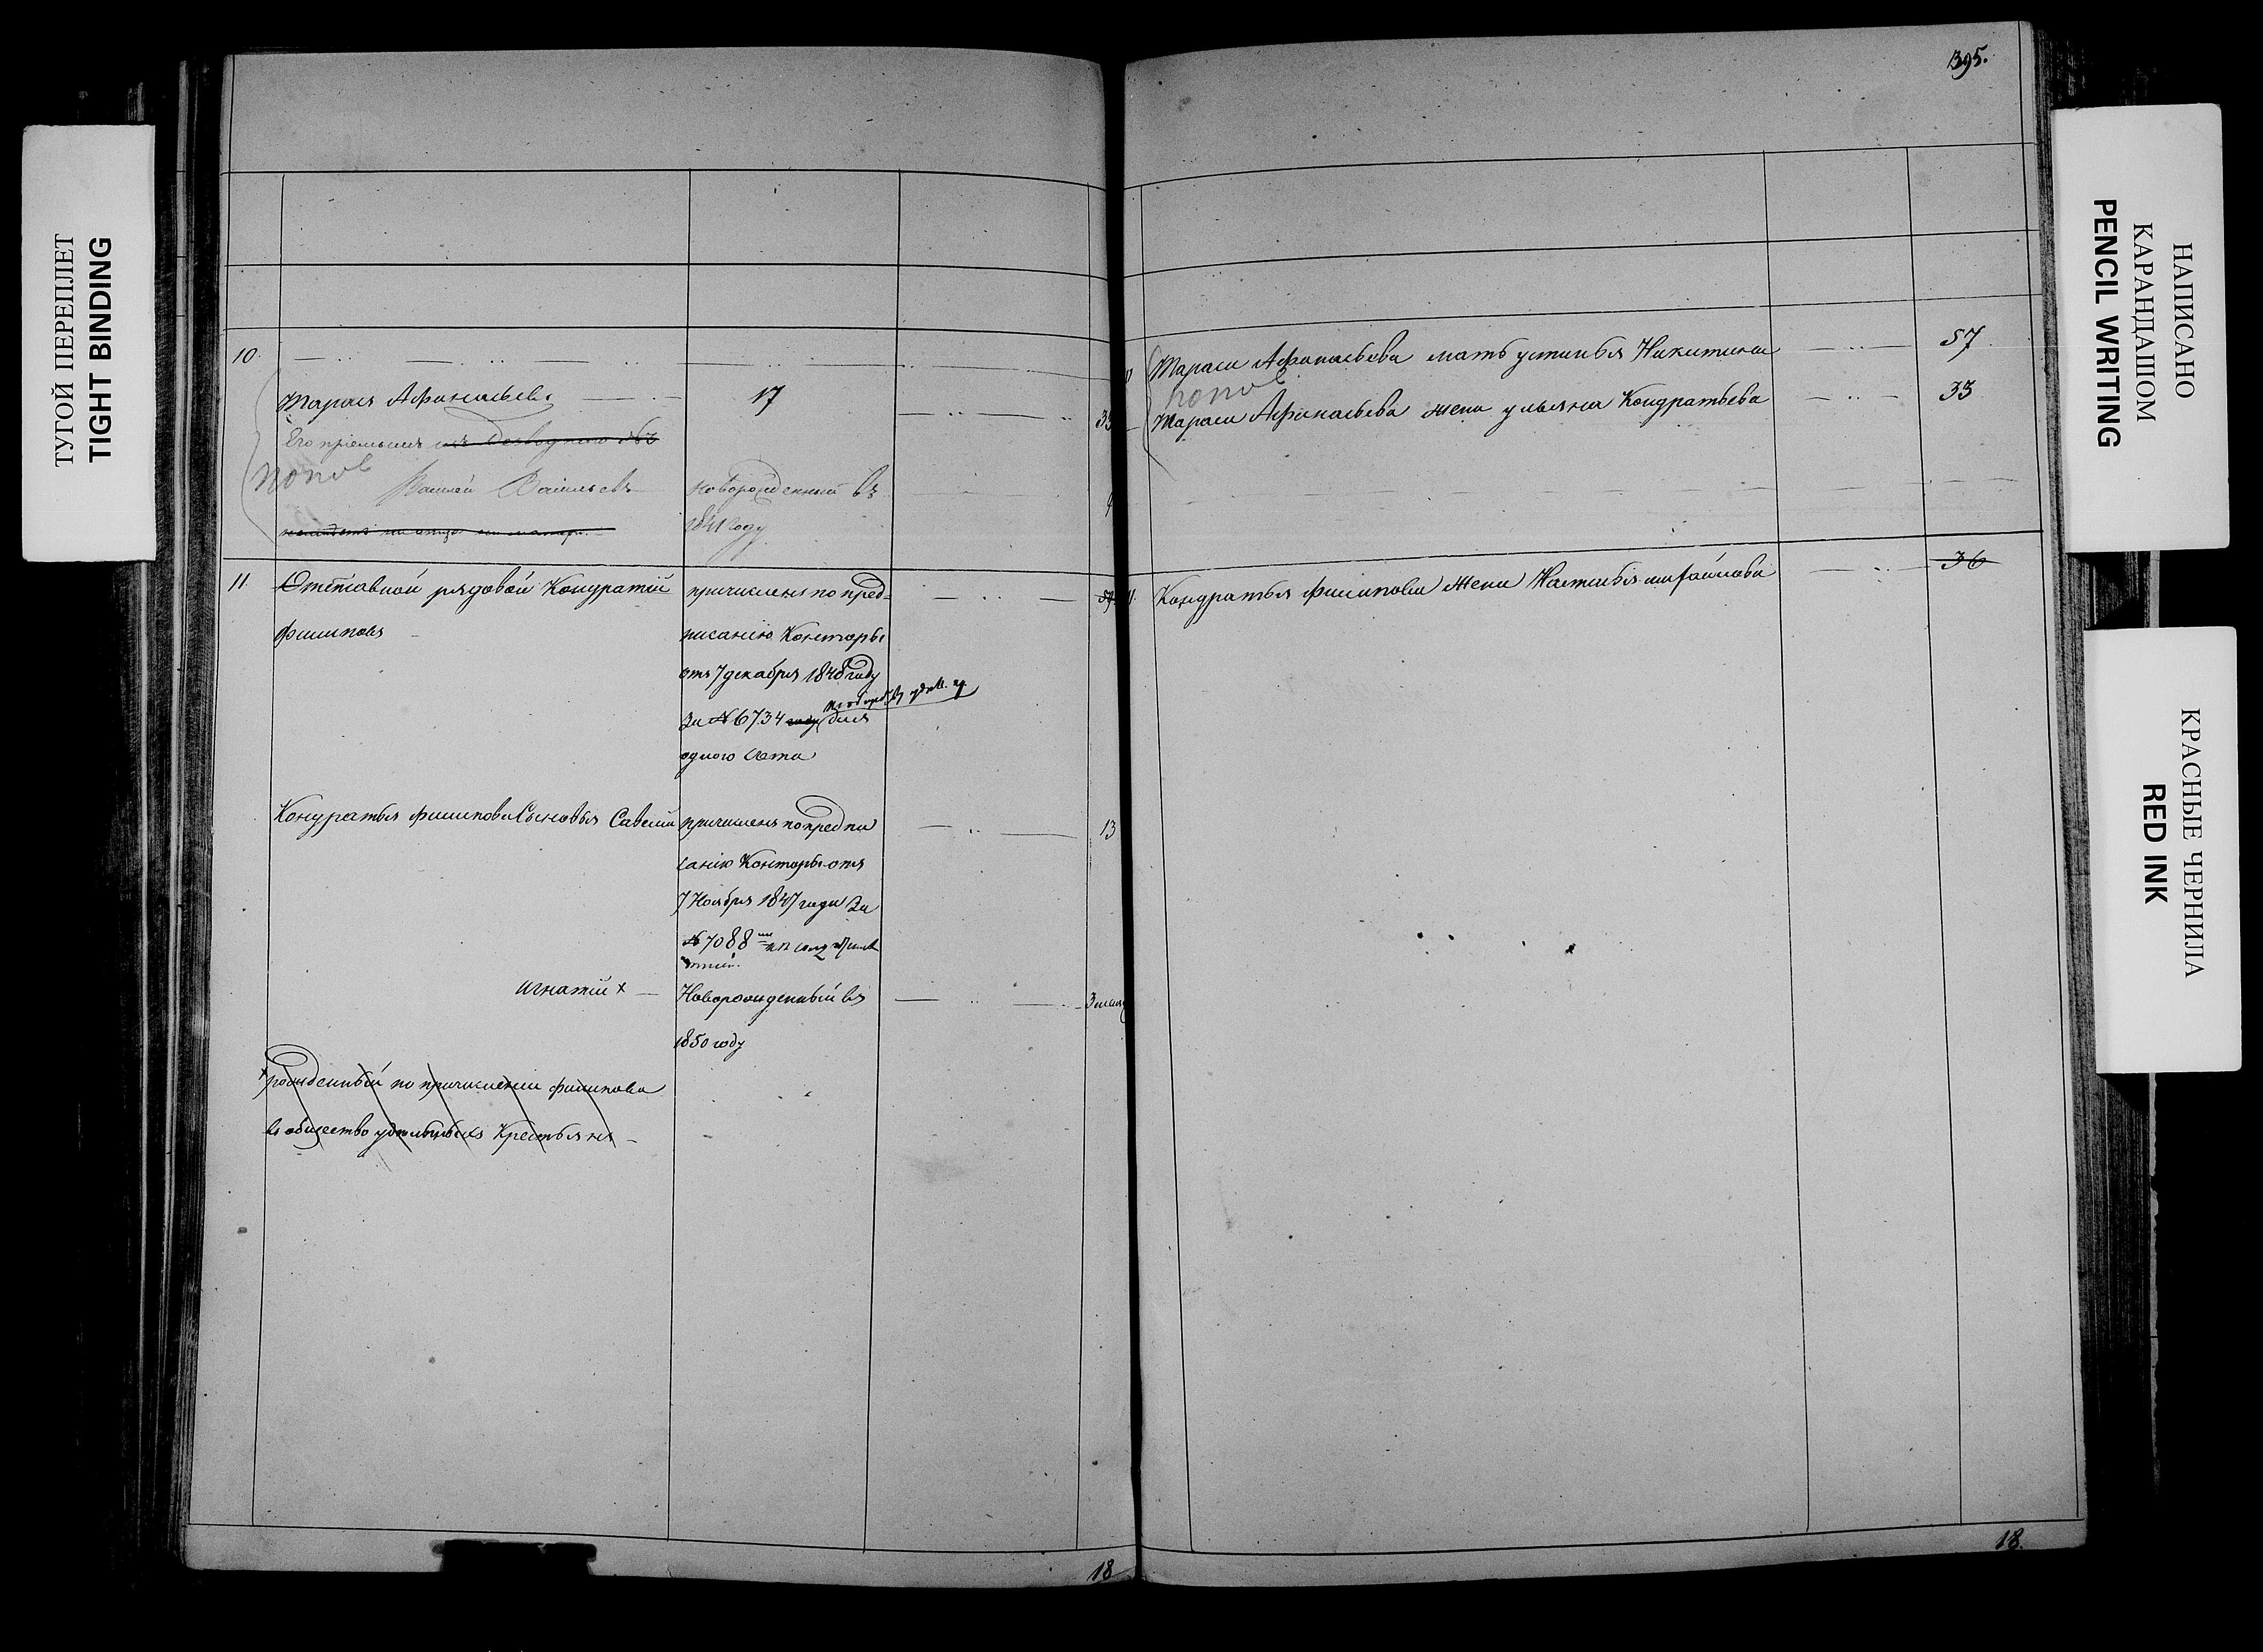 ТУГОЙ ПЕРЕПЛЕТ
TIGHT BINDING
10.
Тарасъ Афанасьевъ 17 33
Его пріемышъ
попов Василій Васильевъ новорожденный въ
1841 году
не отца ни матери
11. Отставной рядовой Кондратій причисленъ по пред-
Филиповъ писанію Конторы
отъ 7 декабря 1848 году
За № 6734 году для
одного счета
Кондратья Филипова Сыновья Савелий причисленъ по предпи 13
санію Конторы отъ
7 Ноября 1847 года За
№ 7088
Игнатій х Новорожденный въ
1850 году
х рожденный по причисленіи Филипова
въ общество удѣльныхъ Крестьянъ
18
395.
Тараса Афанасьева мать устинья Никитина 57
попов
Тараса Афанасьева жена ульяна Кондратьева 33
11. Кондратья Филипова Жена Настасья 36
18.
НАПИСАНО
КАРАНДАШОМ
PENCIL WRITING
КРАСНЫЕ ЧЕРНИЛА
RED INK